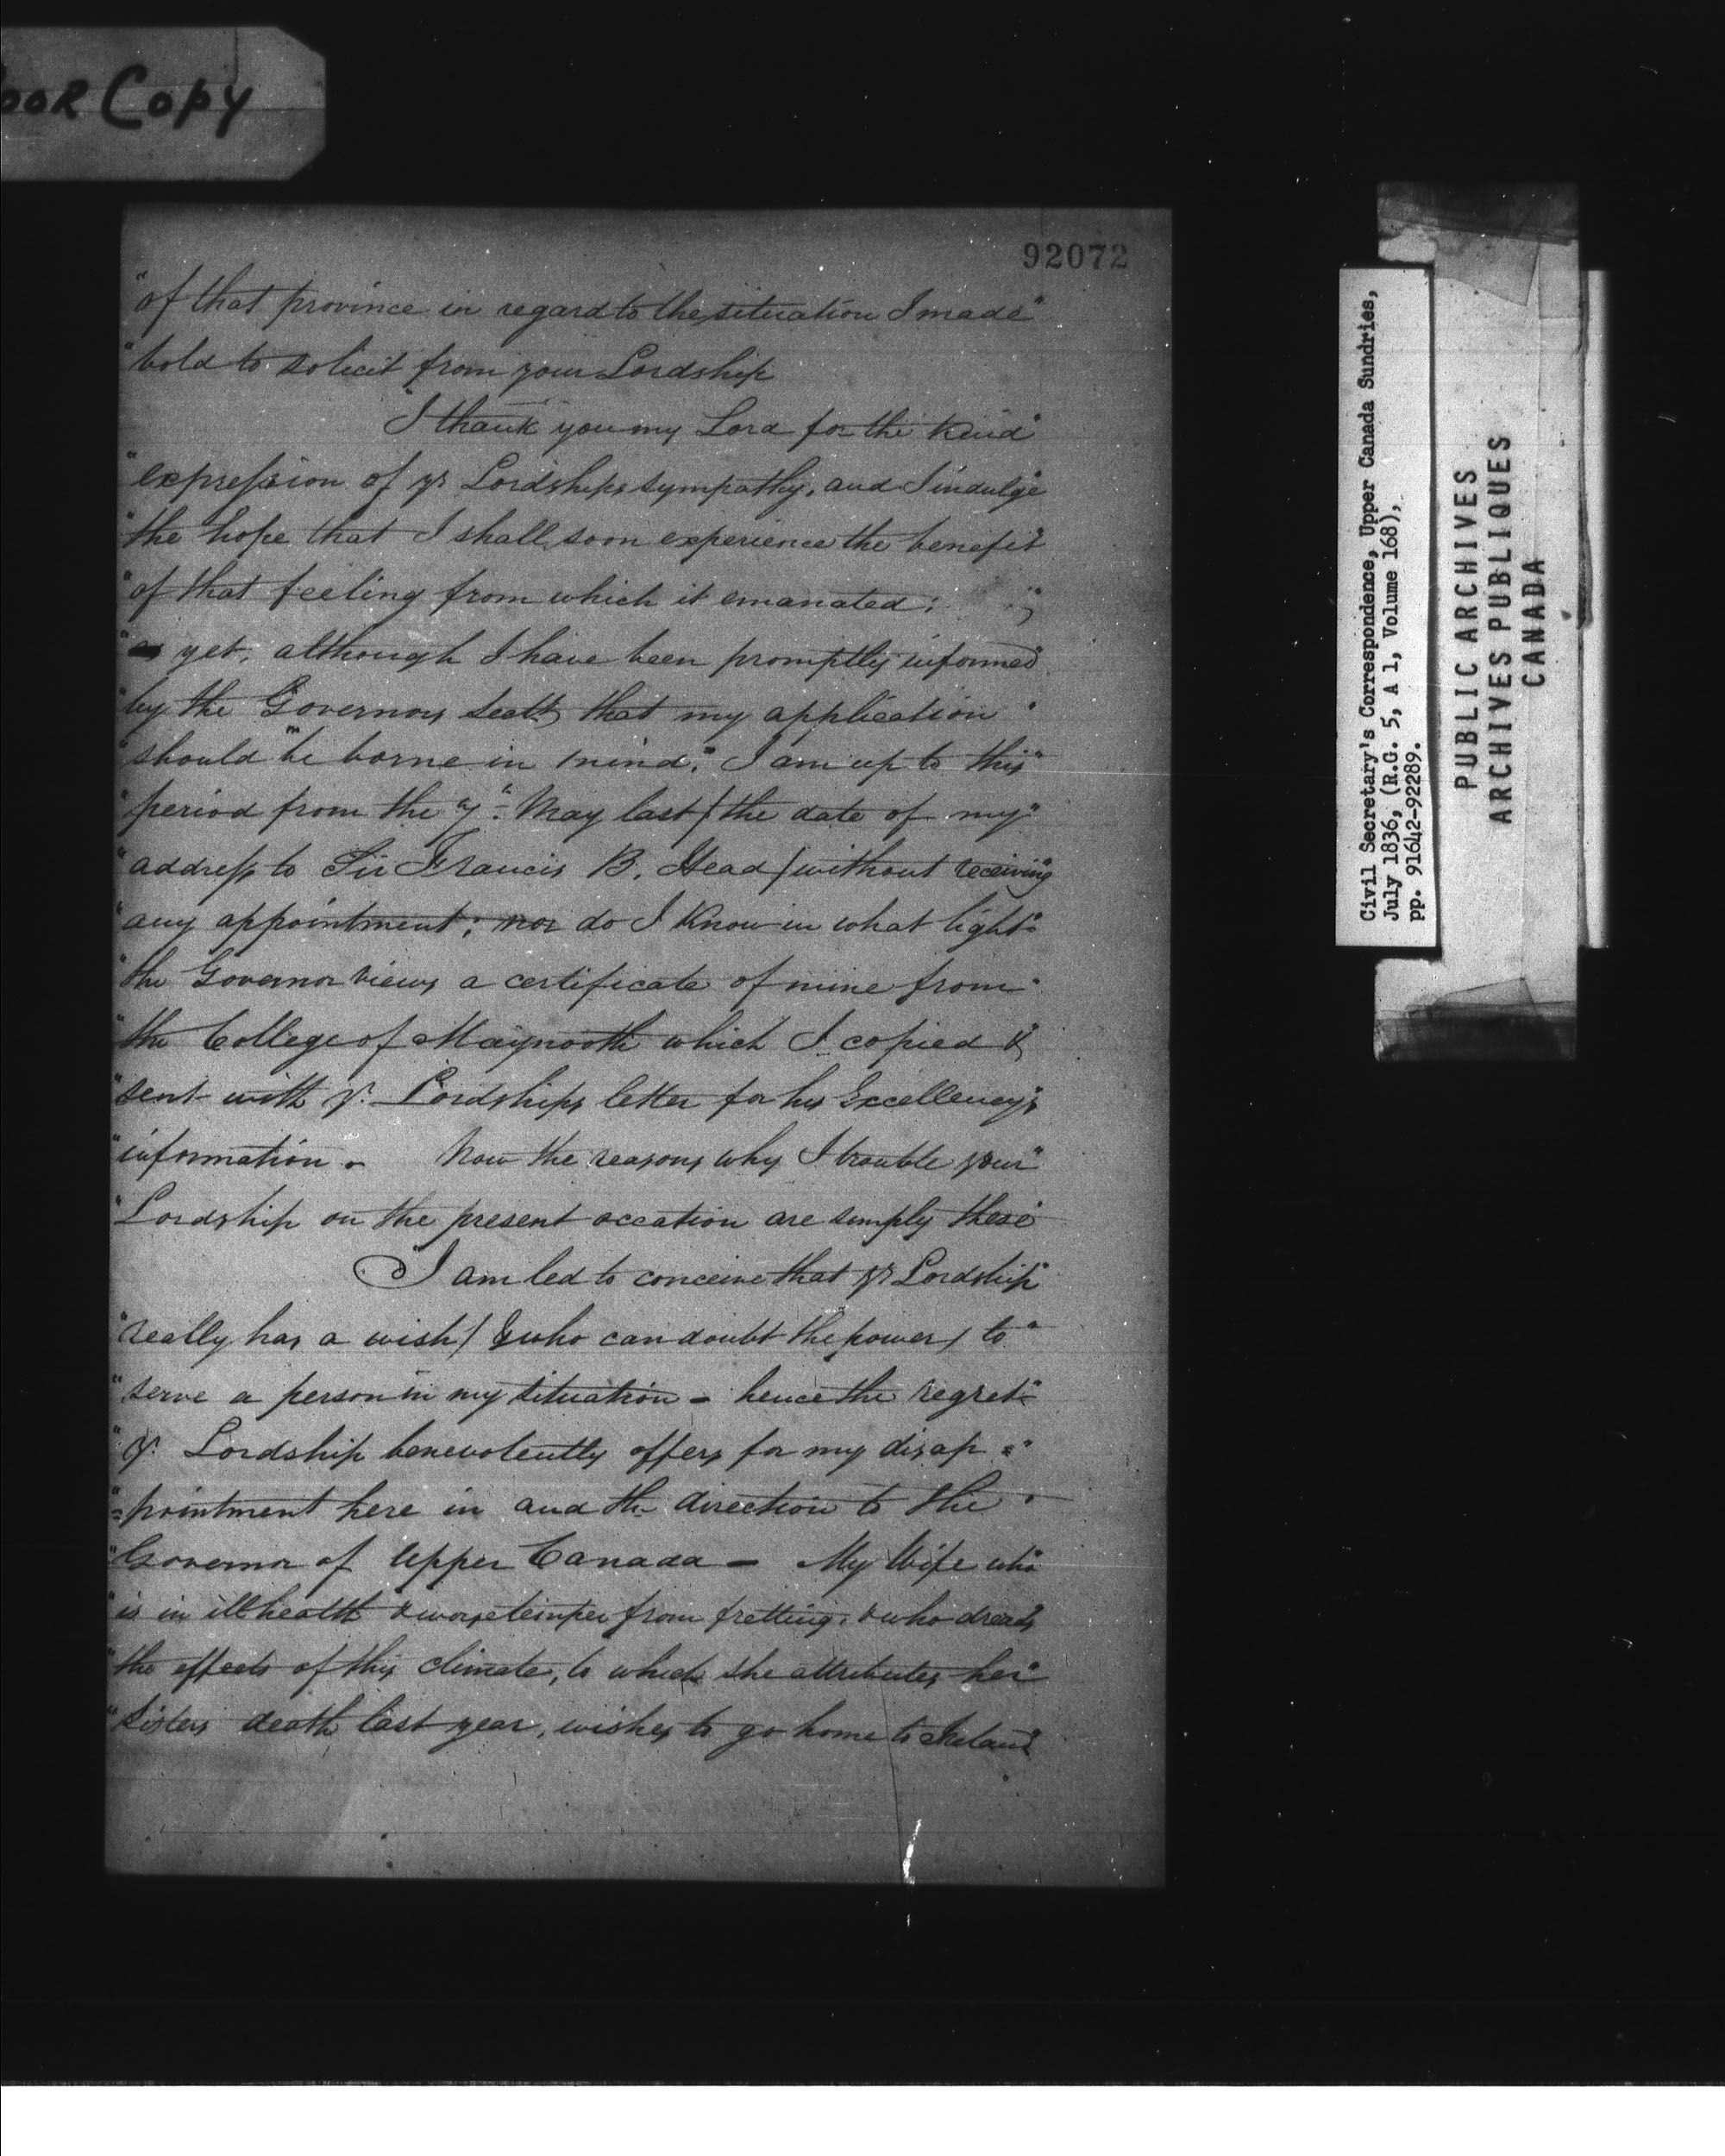 oor Copy
92072
"of that province in regard to the situation I made"
"bold to solicit from your Lordship
"I thank you my Lord for the kind"
"expression of yr Lordships sympathy, and I indulge"
"the hope that I shall soon experience the benefit"
"of that feeling from which it emanated;"
"as yet, although I have been promptly informed"
"by the Governors that my application"
"should "be borne in mind," I am up to this"
"period from the May last / the date of my"
"address to Sir Francis B. Head / without receiving
"any appointment; nor do I know in what light"
"the Governor views a certificate of mine from"
"the College of Maynooth which I copied &
"sent with yr. Lordships letter for his Excellency's
"information. Now the reasons why I trouble your"
"Lordship on the present occation are simply these"
"I am led to conceive that yr Lordship"
"really has a wish / & who can doubt the power / to"
"serve a person in my situation - hence the regret"
"yr. Lordship benevolently offers for my disap="
"=pointment here in and the direction to the"
"Governor of Upper Canada - My Wife who"
"is in ill health & worse temper from fretting, & who dreads
"the effects of this climate, to which she attributes her"
"sisters death last year, wishes to go home to Ireland"
Civil Secretary's Correspondence, Upper Canada Sundries,
July 1836, (R.G. 5, A 1, Volume 168),
pp. 91642-92289.
PUBLIC ARCHIVES
ARCHIVES PUBLIQUES
CANADA